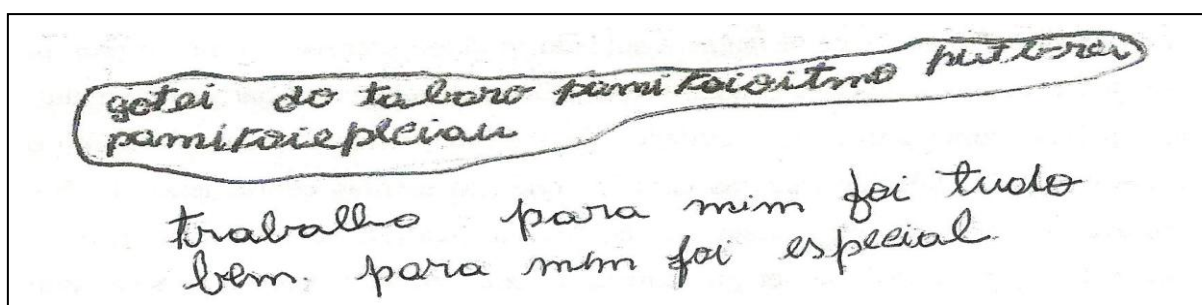 gotei do tabaro pamikoioitmo putbrei
pamikoiepleiau
trabalho para mim foi tudo
bem. para mim foi especial